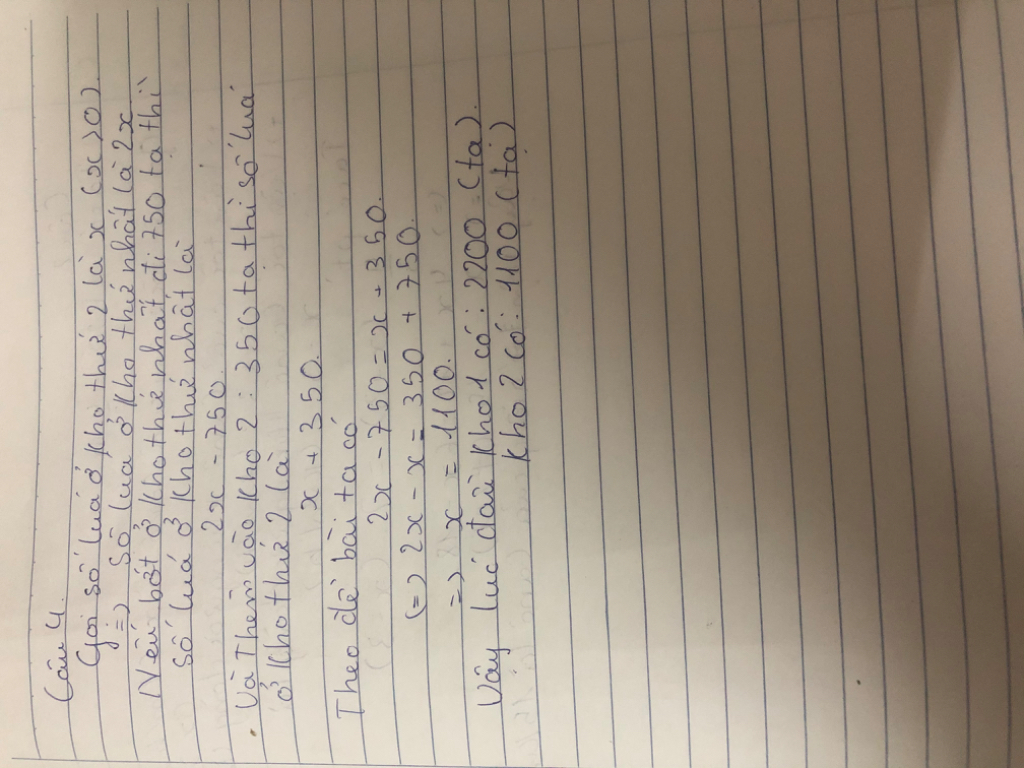 Câu 4.
Gọi số luá ở kho thứ 2 là x (x>0)
=> Số luá ở kho thứ nhất là 2x
Nếu bớt ở kho thứ nhất đi 750 tạ thì
số luá ở kho thứ nhất là
2x - 750.
Và Thêm vào kho 2 : 350 tạ thì số luá
ở kho thứ 2 là
x + 350.
Theo đề bài ta có
2x - 750 = x + 350.
(=) 2x - x = 350 + 750.
=> x = 1100.
Vậy lúc đầu kho 1 có : 2200 (tạ).
kho 2 có : 1100 (tạ)